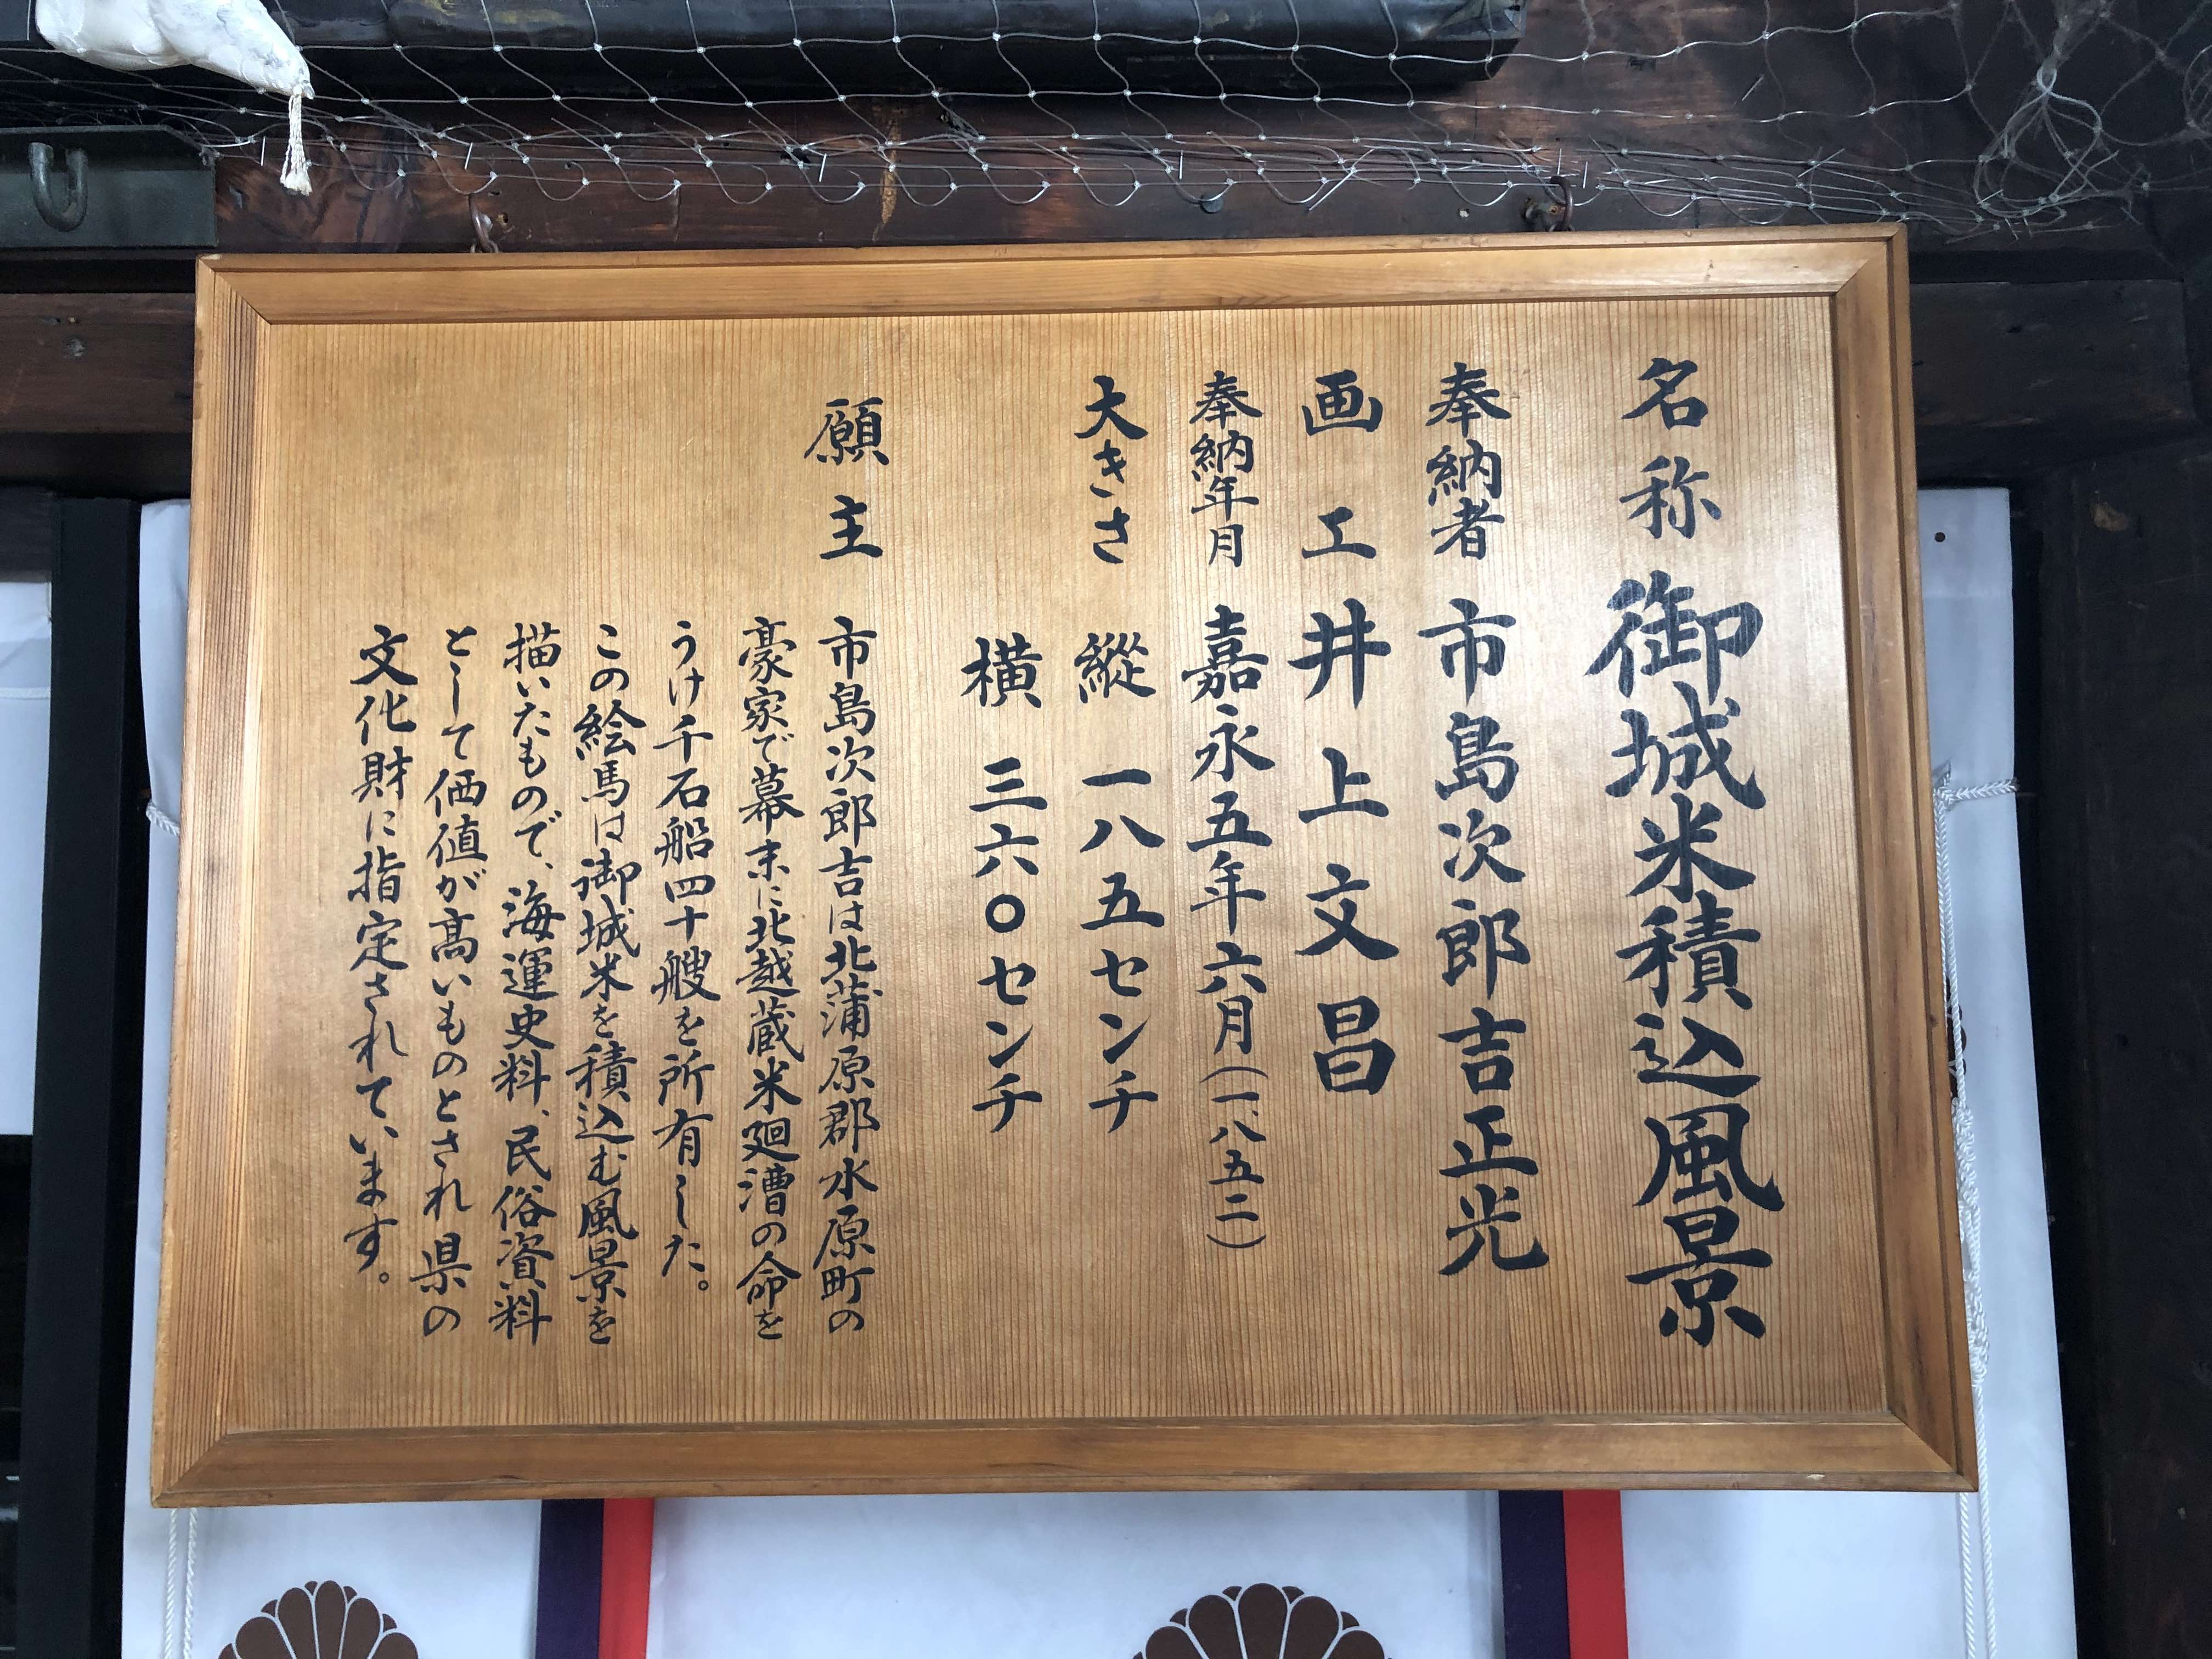 名称 御城米積込風景
奉納者 市島次郎吉正光
画工 井上文昌
奉納年月 嘉永五年六月(一八五二)
大きさ 縦 一八五センチ
横 三六〇センチ
願主 市島次郎吉は北蒲原郡水原町の
豪家で幕末に北越蔵米廻漕の命を
うけ千石船四十艘を所有した。
この絵馬は御城米を積込む風景を
描いたもので、海運史料、民俗資料
として価値が高いものとされ県の
文化財に指定されています。